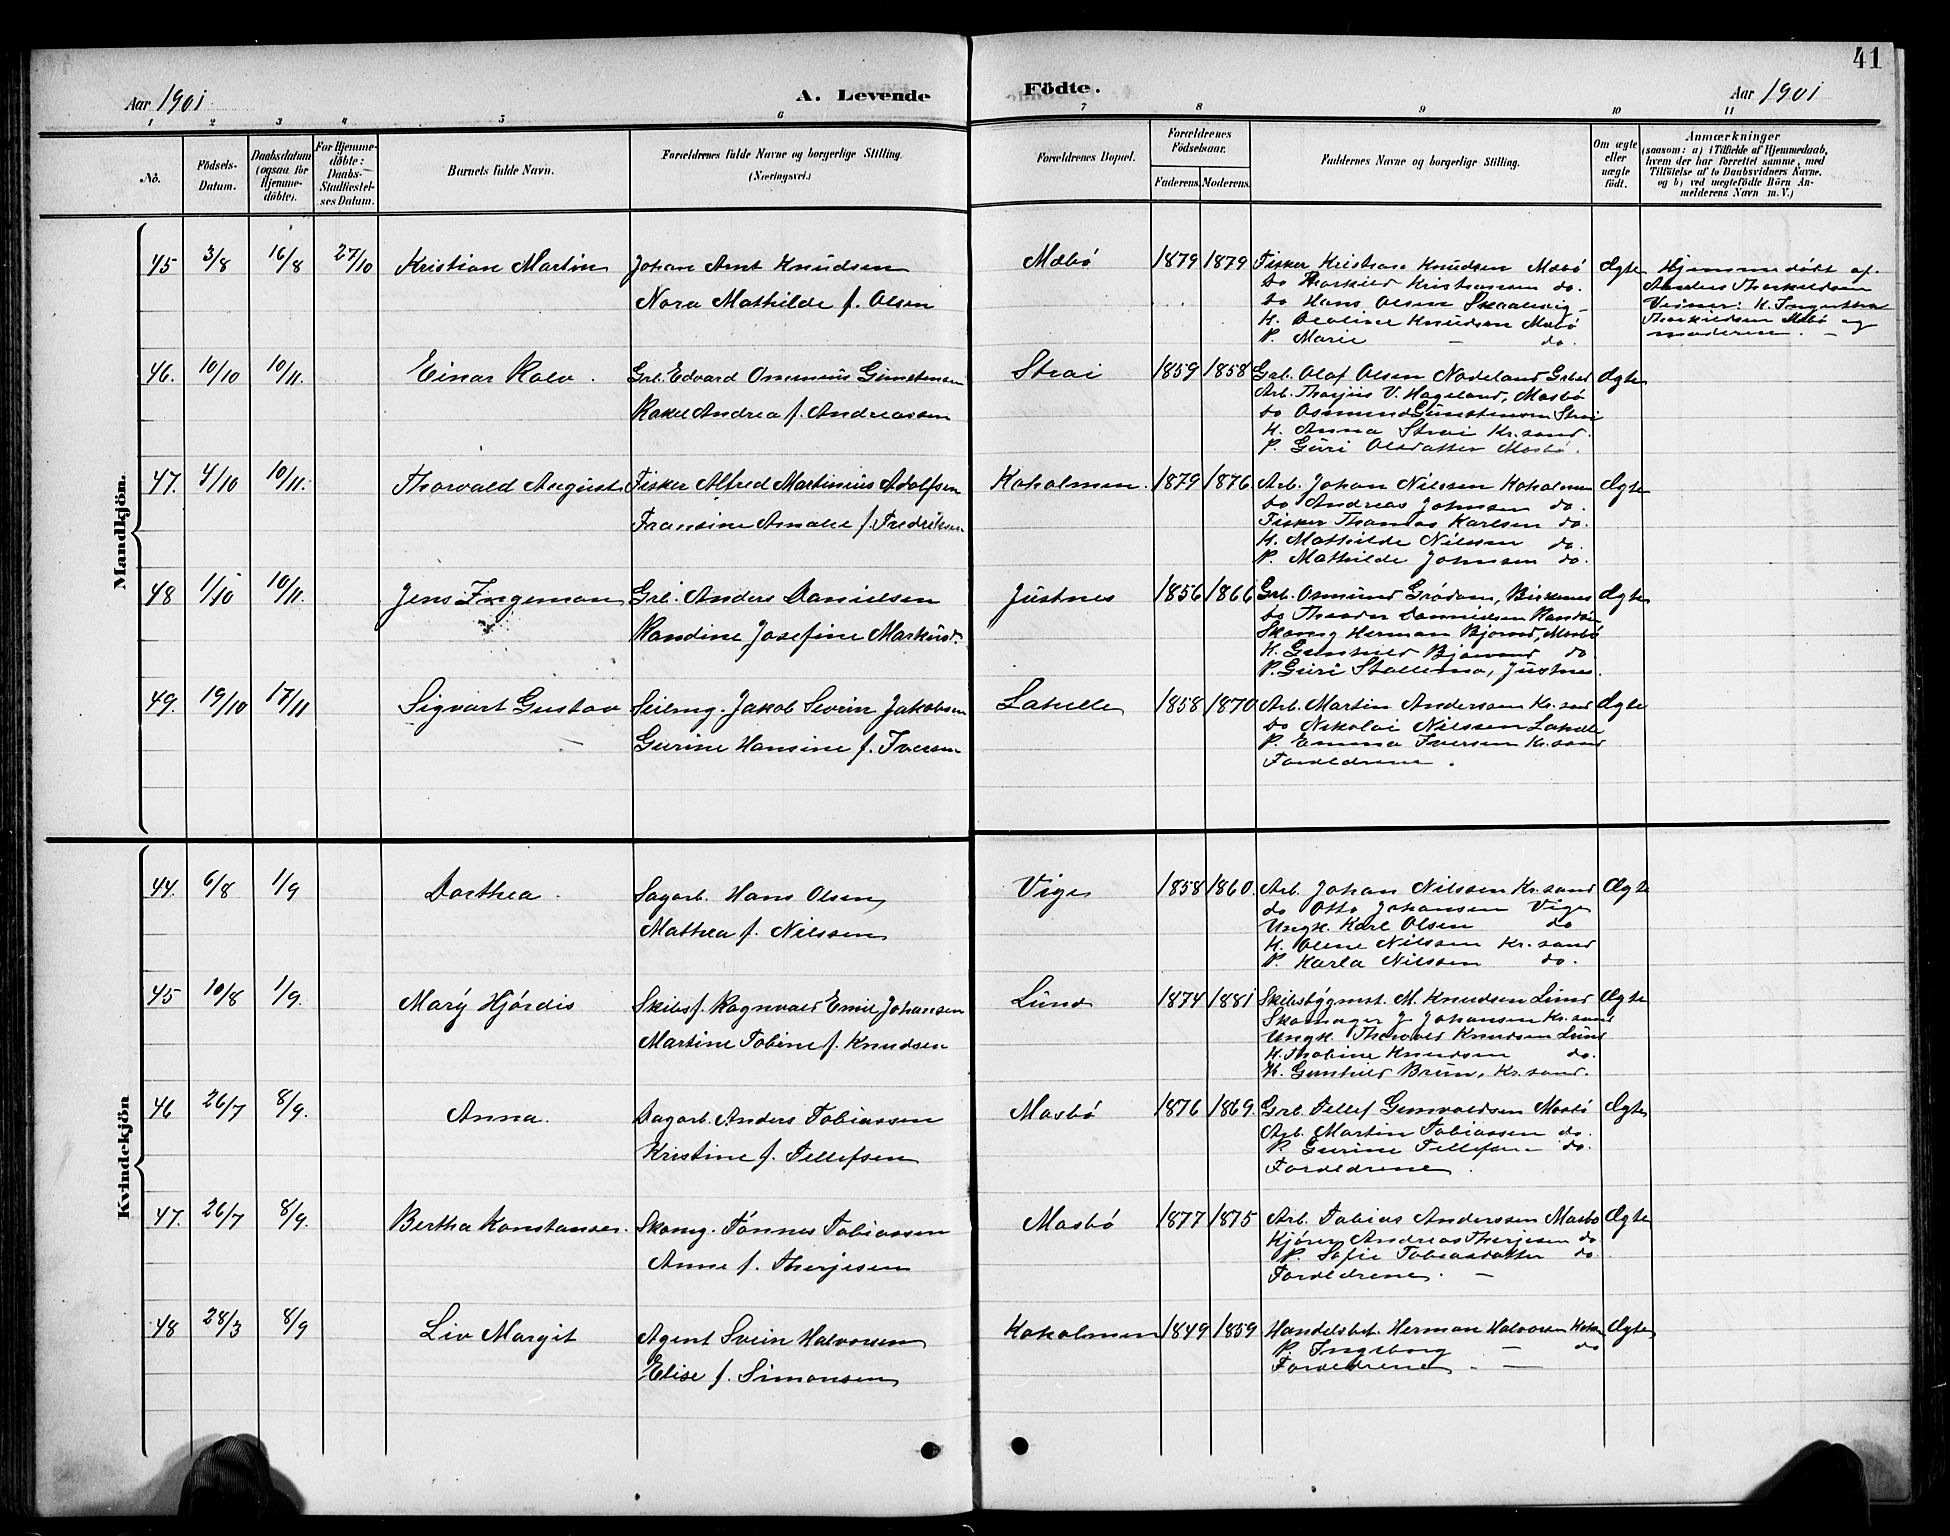 41
Aar 1901.
A. Levende
Födte.
Aar 1901
1 2 3 4 5 6 7 8 9 10 11
No.
Födsels-
Datum.
Daabsdatum
(ogsaa for
Hjemme-
döbte).
For Hjemme-
döbte:
Daabs-
Stadfæstel-
ses Datum.
Barnets fulde Navn.
Forældrenes fulde Navne og borgerlige Stilling.
(Næringsvei.)
Forældrenes Bopæl.
Forældrenes
Födselsaar.
Faderens. Moderens.
Faddernes Navne og borgerlige Stilling.
Om ægte
eller
uægte
født.
Anmærkninger
(saasom: a) i Tilfælde af Hjemmedaab,
hvem der har forrettet samme, med
Tilföielse af to Daabsvidners Navne,
og b) ved uægtefödte Börn An-
melderens Navn m. V.)
Mandkjön.
45 3/8 16/8 27/10 Kristian Martin Johan Arnt Knudsen
Nora Mathilde f. Olsen
Mæbø 1879 1879 Fisker Kristian Knudsen Mæbø
do Thorkild Kristiansen do.
do Hans Olsen
K. Knudsen Mæbø
P. Marie — do.
Ægte
Hjemmedøbt af
Anders Thorkildsen
Thorkildsen Mæbø og
moderen. —
46. 10/10 10/11. Einar Rolv. Grb. Edvard Omenius Gunstensen
Rakel Andrea f. Andreassen
Strai 1859 1858 Grb. Olaf Olsen Nodeland
Arb. Thorjus V. Hageland, Mosbø
do Osmund Gunstensen Strai
K. Anna Strai Kr.sand.
P. Guri Olsdatter Mosbø.
Ægte
47. 4/10 10/11. Thorvald August Fisker Alfred Martinius Adolfsen
Fransine Amalie f. Fredriksen
Koholmen. 1879 1876 Arb. Johan Nilssen Koholmen
do Andreas Johnsen do.
Fisker Thomas Karlsen do.
K. Mathilde Nilssen do.
P. Mathilde Johnsen do.
Ægte
48 1/10 10/11. Jens Ingeman Grb. Anders Danielsen
Randine Josefine Markusd.
Justnes 1856 1866 Grb. Osmund Grødum, Birkenes
do Theodor Danielsen Randø
Skomg Herman Bjorvd, Mosbø
K. Gunhild do
P. Guri Stallemo, Justnes
Ægte
49. 19/10 17/11 Sigvart Gustav Seilmg. Jakob Severin Jakobsen
Gurine Hansine f. Iversen
Lahelle 1858 1870 Arb. Martin Andersen Kr. sand
do Nikolai Nilssen Lahelle
P. Emma Iversen Kr. sand
Forældrene.
Ægte
Kvindekjön
44. 6/8 1/9 Dorthea. Sagarb. Hans Olsen
Mathea f. Nilssen
Vige 1858 1860. Arb. Johan Nilssen Kr. sand
do Otto Johansen Vige
Ungk. Karl Olsen do
K. Oline Nilssen Kr. sand
P. Karla Nilssen do.
Ægte
45 10/8 1/9. Mary Hjórdis Skibsf. Ragnvald Emil Johansen
Martine Tobine f. Knudsen
Lund 1874 1881 Skibsbygmst. M. Knudsen Lund
Skomager J. Johansen Kr. sand
Ungk. Thorvald Knudsen Lund
K. Thobine Knudsen do.
K. Gunhild Brün, Kr. sand.
Ægte
46 26/7 8/9. Anna. Dagarb. Anders Tobiassen
Kristine f. Tellefsen
Mosbø 1876 1869. Grb. Tellef Gunvaldsen Mosbø
Arb. Martin Tobiassen do.
P. Gurine Tellefsen do.
Forældrene.
Ægte
47. 26/7 8/9. Bertha Konstanse. Skomg. Tónnes Tobiassen
Anne f. Therjesen
Mosbø 1877 1875 Arb. Tobias Anderssen Mosbø
Kjører Andreas Therjesen do
P. Sofie Tobiasdatter do.
Forældrene. —
Ægte
48 28/3 8/9 Liv Margit Agent Svein Halvorsen
Elise f. Simonsen
Koholmen 1849 1859 Handelsbet. Herman Halvorsen
P. Ingeborg — do
Forældrene. —
Ægte